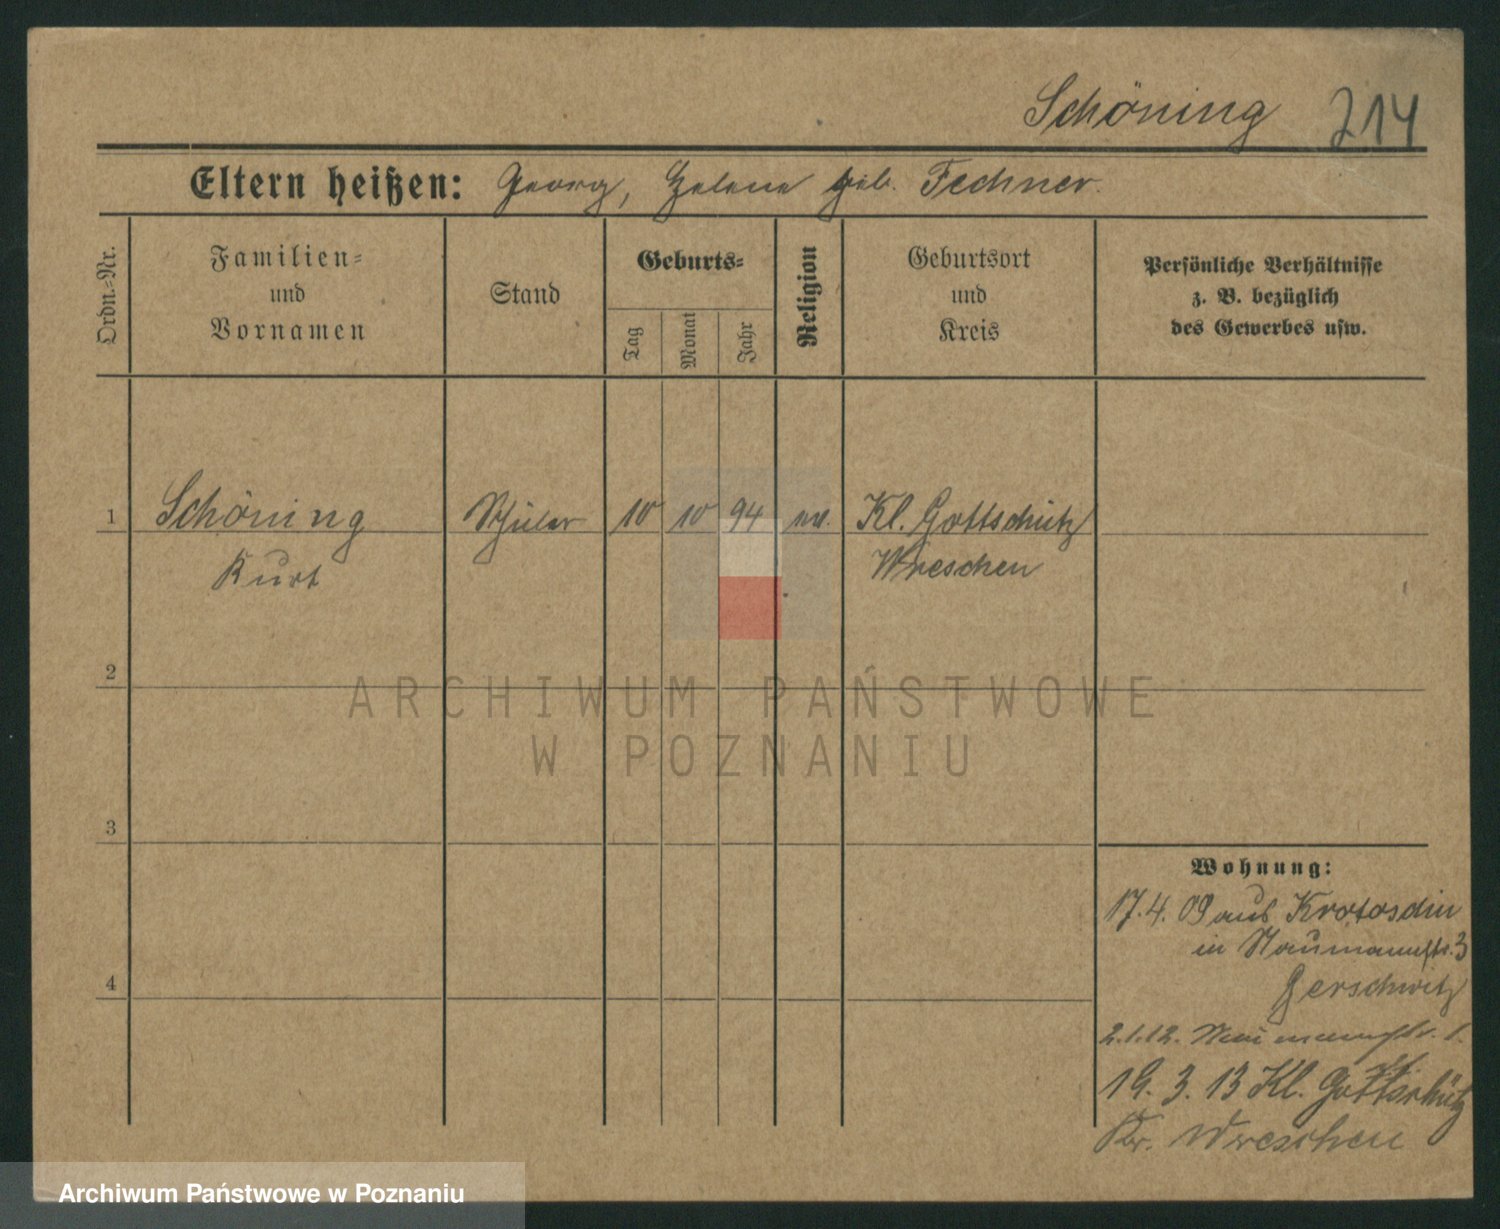 Schöning 214
Eltern heißen: Georg, Helene geb. Fechner.
Ordn.-Nr.
Familien-
und
Vornamen
Stand
Geburts-
Tag
Monat
Jahr
Religion
Geburtsort
und
Kreis
Persönliche Verhältnisse
z. B. bezüglich
des Gewerbes usw.
1 Schöning Schüler 10 10 94 ev. Kl. Gottschütz
Kurt Wreschen
2
3
4
Wohnung:
17.4.09 aus Krotoschin
in Naumannstr. 3
Gerschwitz
2.1.12. Naumannstr. 1.
19. 3. 13 Kl. Gottschütz
Kr. Wreschen
ARCHIWUM PAŃSTWOWE
W POZNANIU
Archiwum Państwowe w Poznaniu